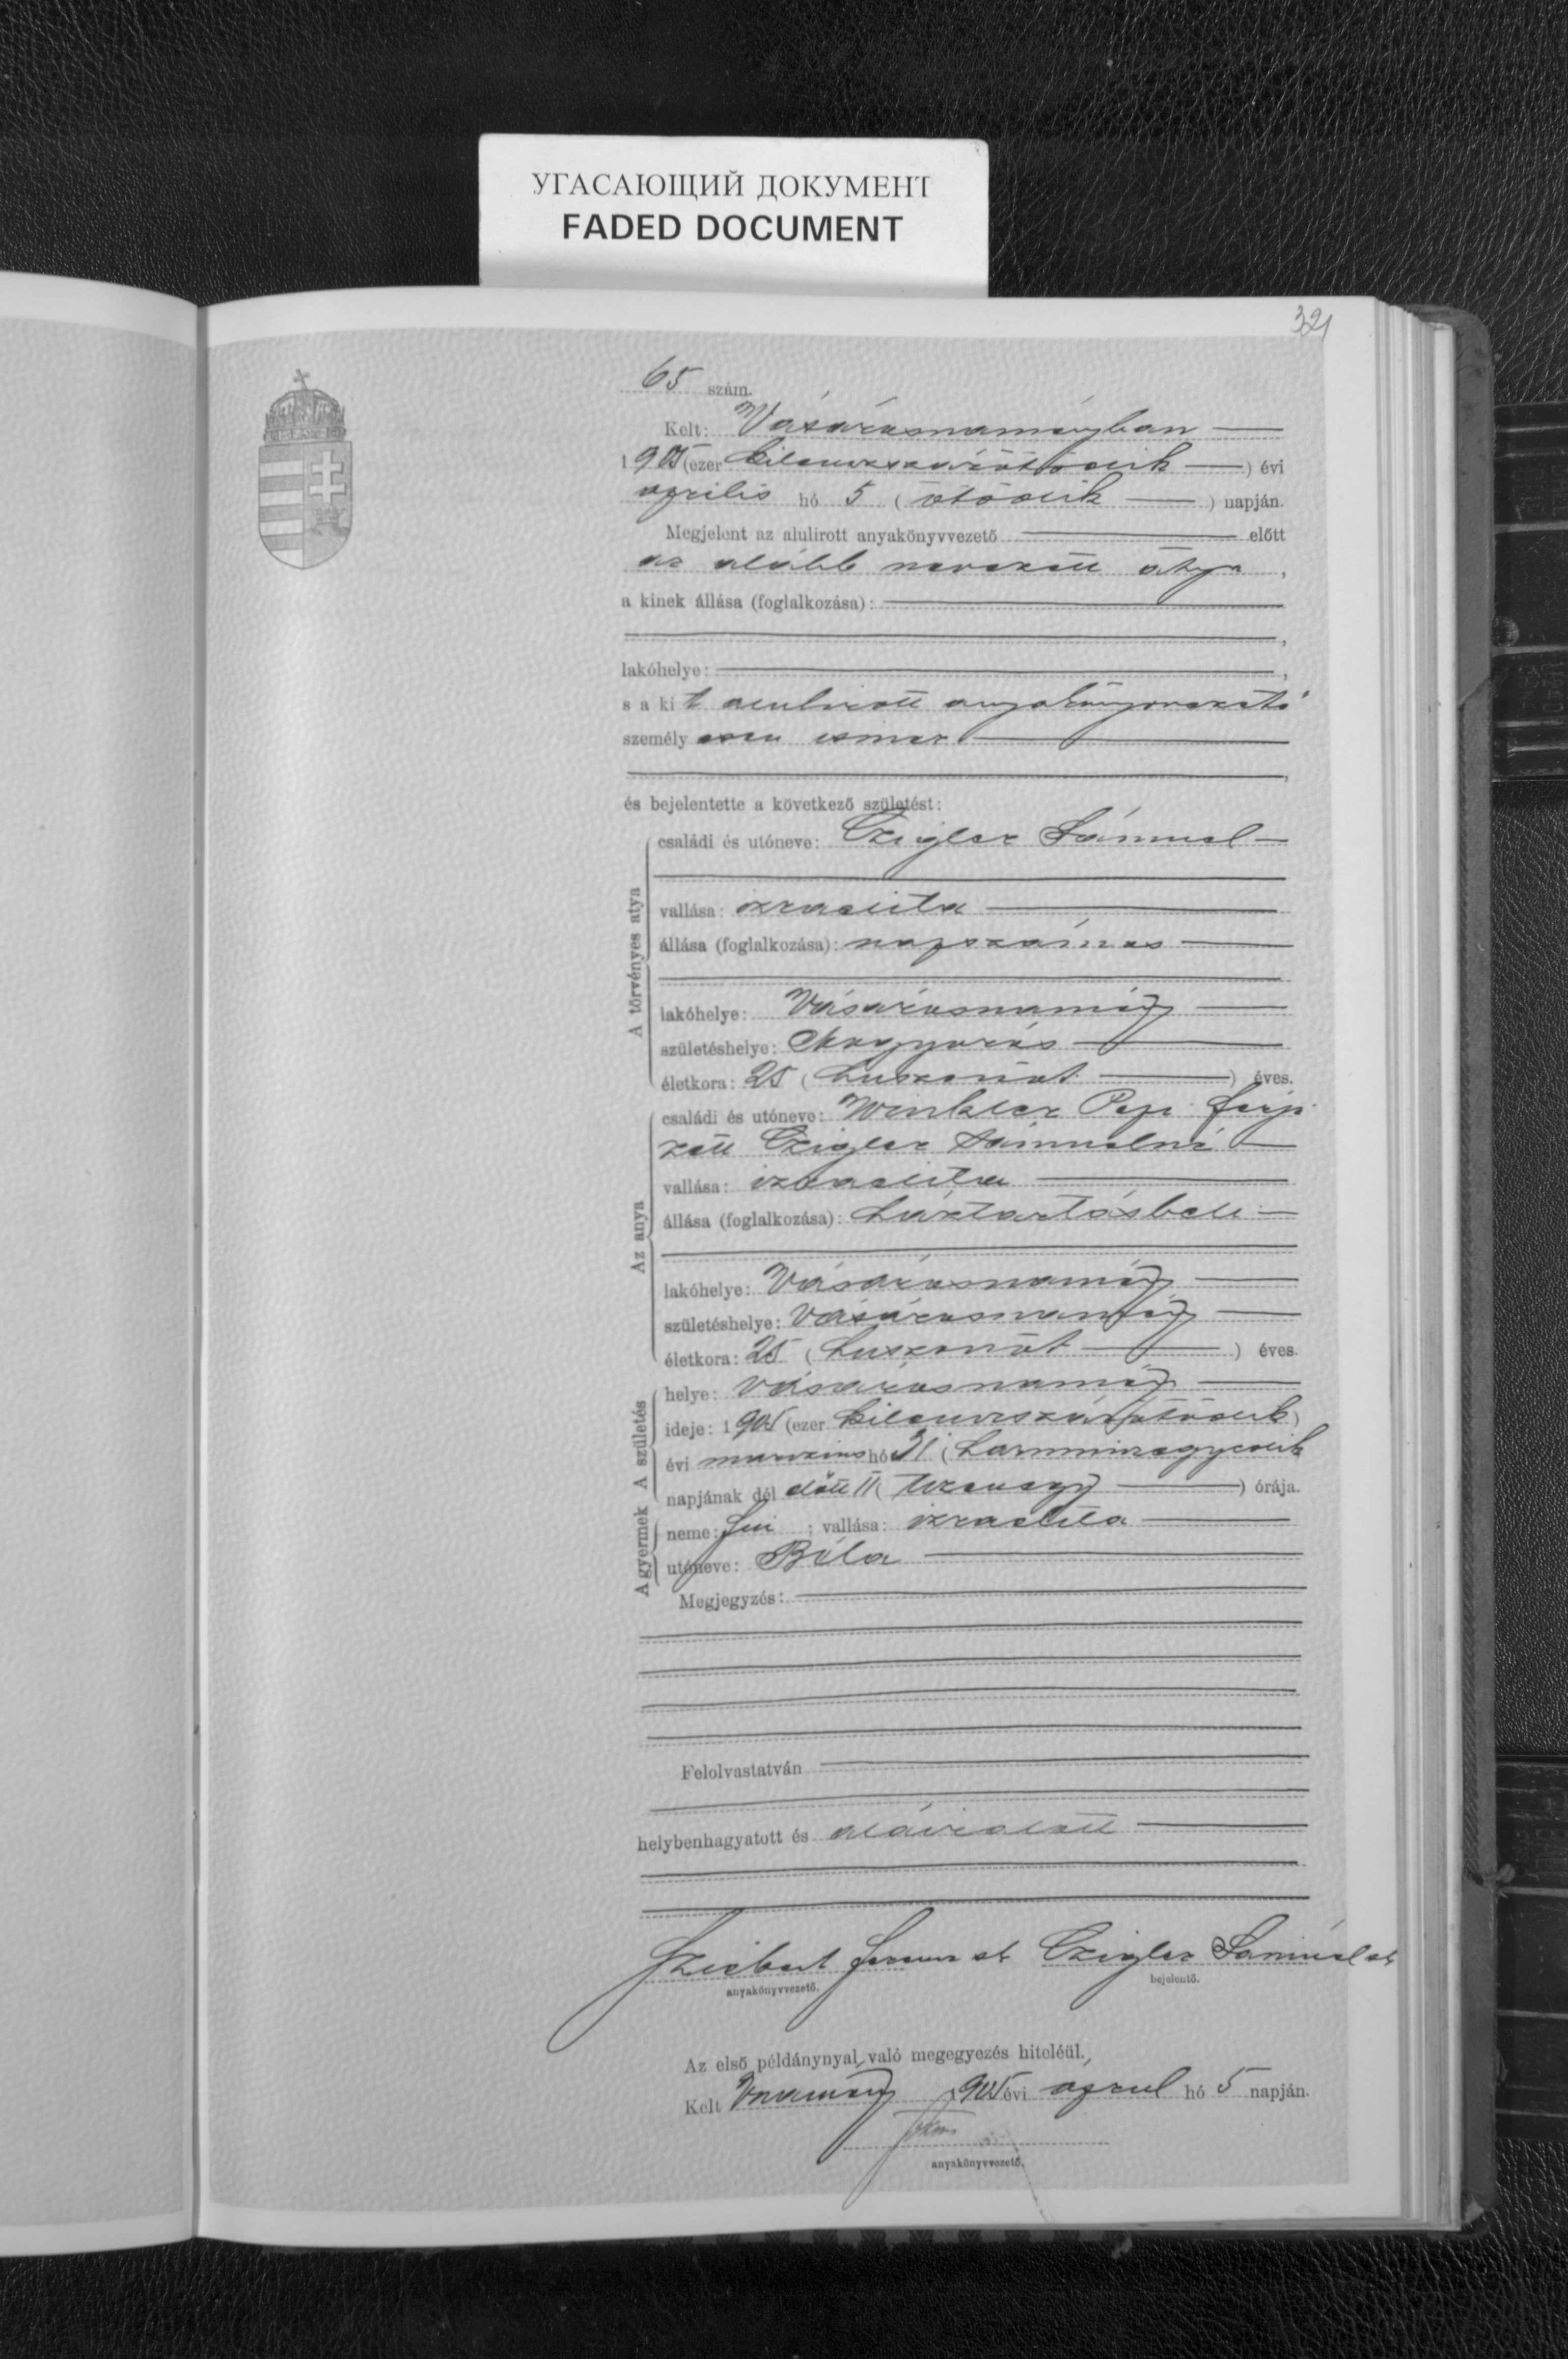 УГАСАЮЩИЙ ДОКУМЕНТ
FADED DOCUMENT
321
65 szám.
Kelt: Vásárosnaményban
1905 (ezer kilenczszázötödik) évi
április hó 5 (ötödik) napján.
Megjelent az alulirott anyakönyvvezető előtt
az alább nevezett atya,
a kinek állása (foglalkozása):
lakóhelye:
s a kit alulirott anyakönyvvezető
személyesen ismer
és bejelentette a következő születést:
A törvényes atya
családi és utóneve: Czigler Sámuel
vallása: izraelita
állása (foglalkozása): napszámos
lakóhelye: Vásárosnamény
születéshelye:
életkora: 25 (huszonöt) éves.
Az anya
családi és utóneve: Winkler Pepi férje-
zett Czigler Sámuelné
vallása: izraelita
állása (foglalkozása): háztartásbeli
lakóhelye: Vásárosnamény
születéshelye: Vásárosnamény
életkora: 25 (huszonöt) éves.
A születés
helye: Vásárosnamény
ideje: 1905 (ezer kilenczszázötödik)
évi márczius hó 31 (harminczegyedik
napjának dél előtt 11 (tizenegy) órája.
A gyermek
neme: fiú; vallása: izraelita
utóneve: Béla
Megjegyzés:
Felolvastatván
helybenhagyatott és aláiratott
Ferencz sk Czigler Sámuel sk
anyakönyvvezető. bejelentő.
Az első példánynyal való megegyezés hiteléül.
Kelt Vnamény 1905 évi ápril hó 5 napján.
anyakönyvvezető.